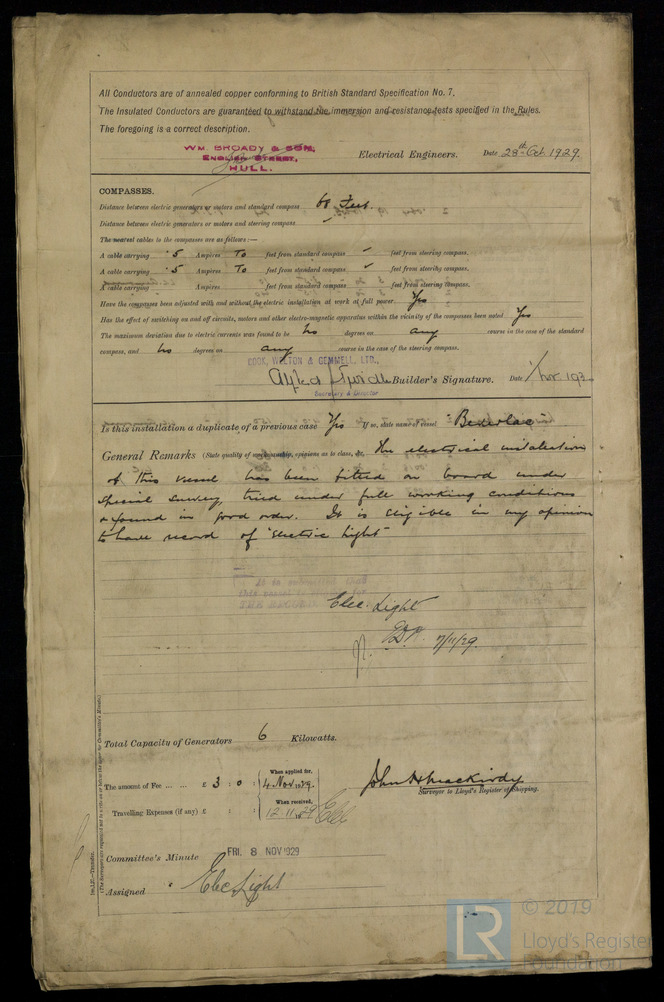 All Conductors are of annealed copper conforming to British Standard Specification No. 7.
The Insulated Conductors are guaranteed to withstand the immersion and resistance tests specified in the Rules.
The foregoing is a correct description.
WM. BROADY & SON,
ENGLISH STREET,
HULL.
Electrical Engineers. Date 28th Oct 1929.
COMPASSES.
Distance between electric generators or motors and standard compass 60 feet.
Distance between electric generators or motors and steering compass
The nearest cables to the compasses are as follows:—
A cable carrying .5 Ampères To feet from standard compass feet from steering compass.
A cable carrying .5 Ampères To feet from standard compass feet from steering compass.
A cable carrying Ampères feet from standard compass feet from steering compass.
Have the compasses been adjusted with and without the electric installation at work at full power Yes
Has the effect of switching on and off circuits, motors and other electro-magnetic apparatus within the vicinity of the compasses been noted Yes
The maximum deviation due to electric currents was found to be no degrees on any course in the case of the standard
compass, and no degrees on any course in the case of the steering compass.
COOK, WELTON & GEMMELL, LTD.,
Builder's Signature. Date 1 Nov. 192
Secretary & Director
Is this installation a duplicate of a previous case Yes If so, state name of vessel "Beverlac"
General Remarks (State quality of workmanship, opinions as to class, &c. The electrical installation
of this vessel has been fitted on board under
special survey, tried under full working conditions
& found in good order. It is eligible in my opinion
to have record of "Electric Light"
Elec. Light
7/11/29.
Total Capacity of Generators 6 Kilowatts.
The amount of Fee ... ... £ 3 : 0 : When applied for, 4 Nov 1929.
Surveyor to Lloyd's Register of Shipping.
Travelling Expenses (if any) £ : : When received, 12.11.29
Committee's Minute FRI. 8 NOV 1929
Assigned Elec Light
1m,1,27.—Transfer.
© 2019
LR Lloyd's Register
Foundation